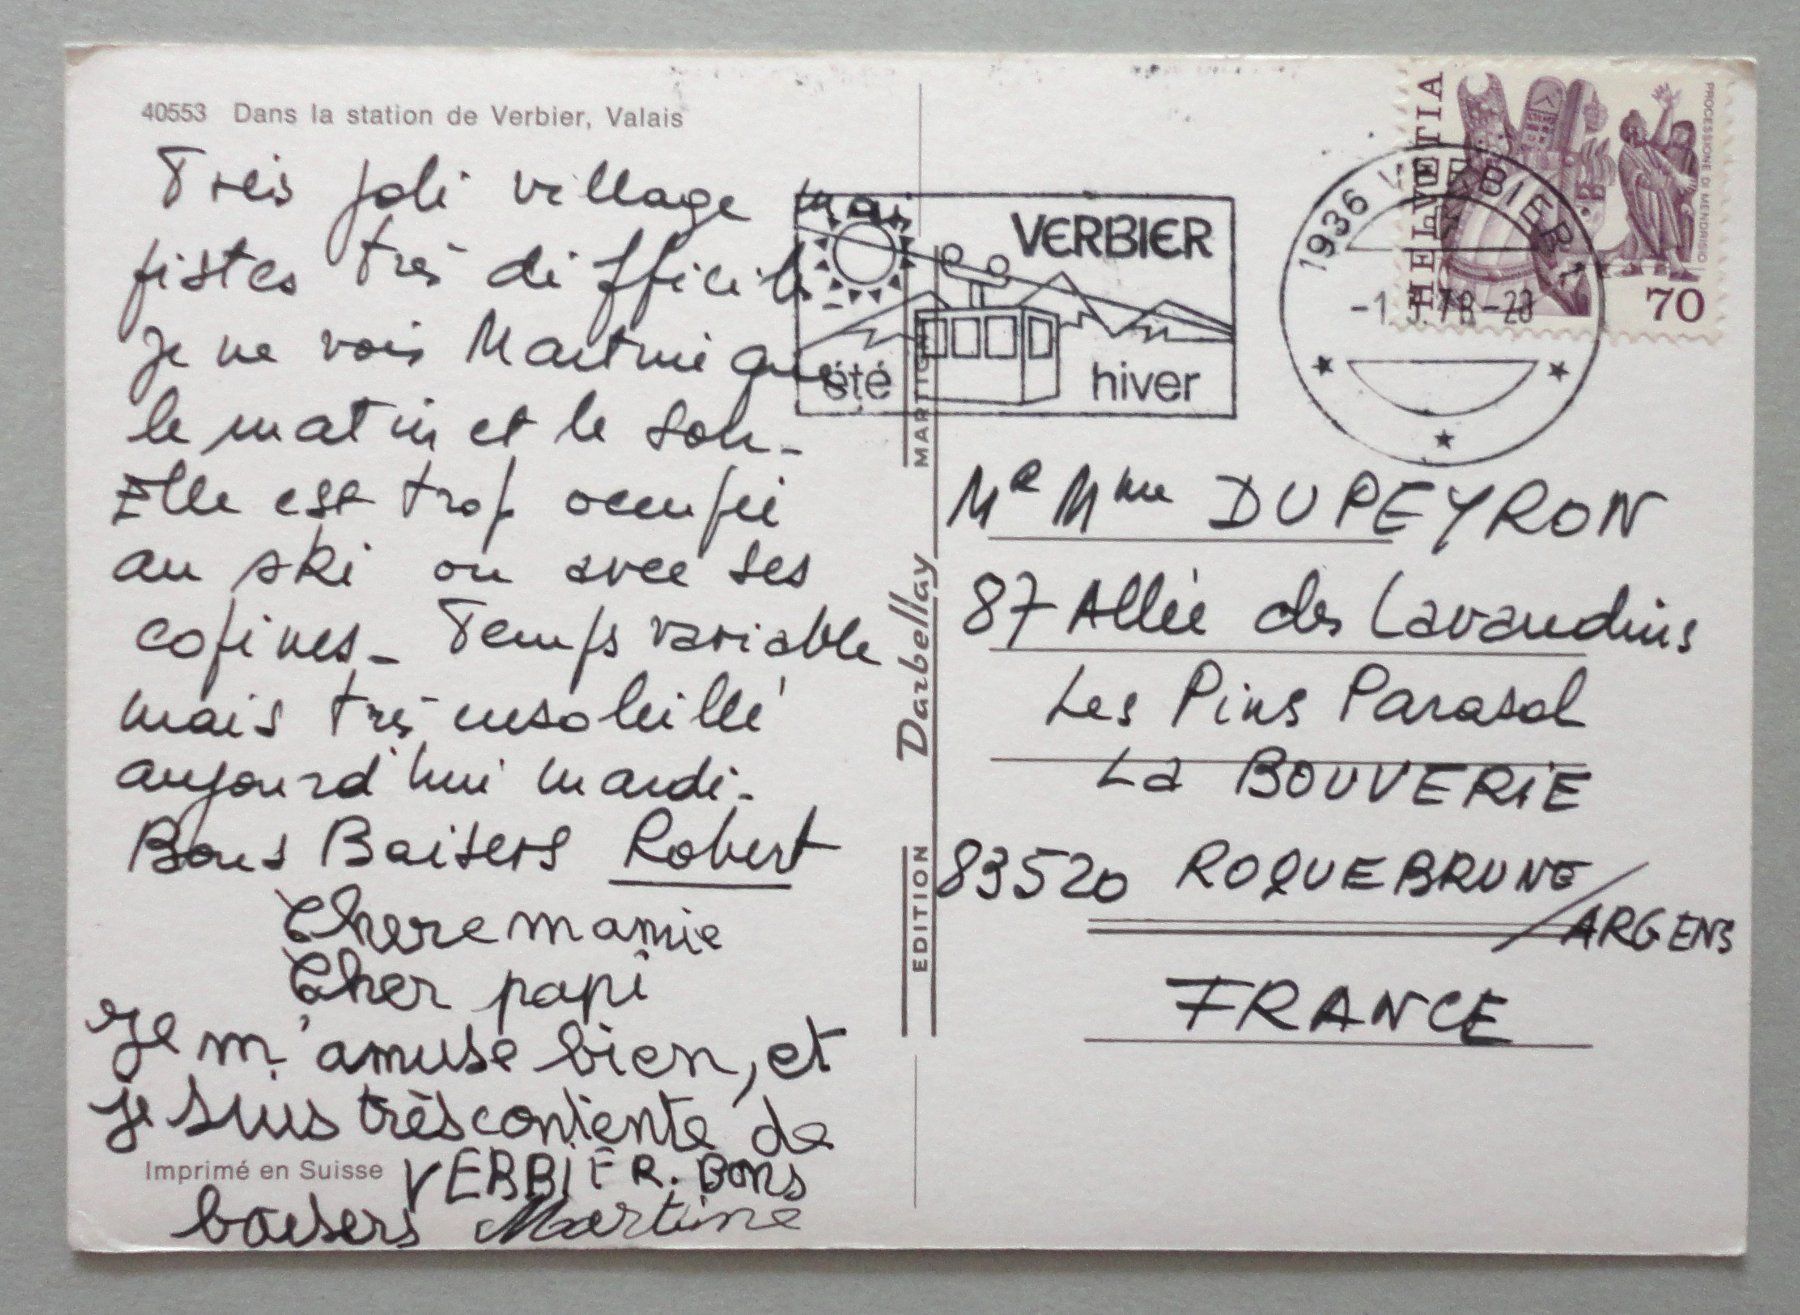 40553 Dans la station de Verbier, Valais
Très joli village mais
pistes très difficiles
Je ne vois Martine que
le matin et le soir_
Elle est trop occupée
au ski ou avec ses
copines_ Temps variable
mais très ensoleillé
aujourd'hui mardi_
Bons Baisers Robert
Chere mamie
Cher papi
Je m'amuse bien, et
je suis très contente de
VERBIER. Bons
baisers Martine
Imprimé en Suisse
EDITION Darbellay MARTIGNY
VERBIER
été hiver
1936 VERBIER 1
HELVETIA
PROCESSIONE DI MENDRISIO
70
Mr Mme DUPEYRON
87 Allée des Lavandins
Les Pins Parasol
La BOUVERIE
83520 ROQUEBRUNE/
ARGENS
FRANCE